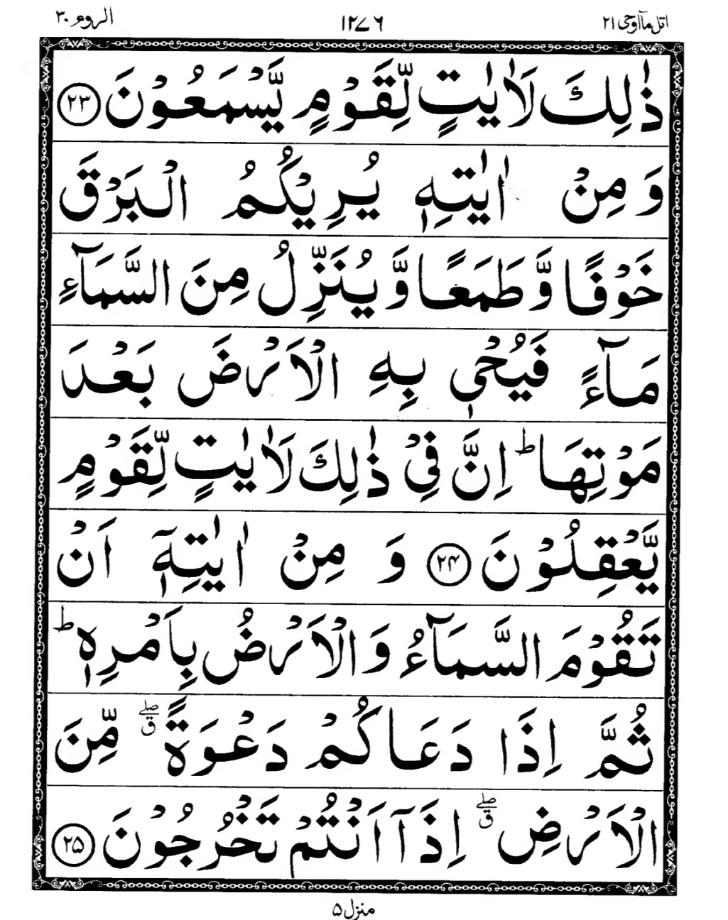 اتل مآ اوحی ۲۱ ۱۲۷۶ الروم ۳۰
ذٰلِكَ لَاٰيٰتٍ لِّقَوْمٍ يَّسْمَعُوْنَ ۲۳
وَ مِنْ اٰيٰتِهٖ يُرِيْكُمُ الْبَرْقَ
خَوْفًا وَّ طَمَعًا وَّ يُنَزِّلُ مِنَ السَّمَآءِ
مَآءً فَيُحْیٖ بِهِ الْاَرْضَ بَعْدَ
مَوْتِهَا ؕ اِنَّ فِیْ ذٰلِكَ لَاٰيٰتٍ لِّقَوْمٍ
يَّعْقِلُوْنَ ۲۴ وَ مِنْ اٰيٰتِهٖۤ اَنْ
تَقُوْمَ السَّمَآءُ وَ الْاَرْضُ بِاَمْرِهٖ ؕ
ثُمَّ اِذَا دَعَاكُمْ دَعْوَةً ۖق مِّنَ
الْاَرْضِ ۖق اِذَاۤ اَنْتُمْ تَخْرُجُوْنَ ۲۵
منزل ۵